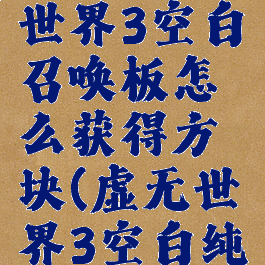 世界3空白
召唤板怎
么获得方
块(虚无世
界3空白纯